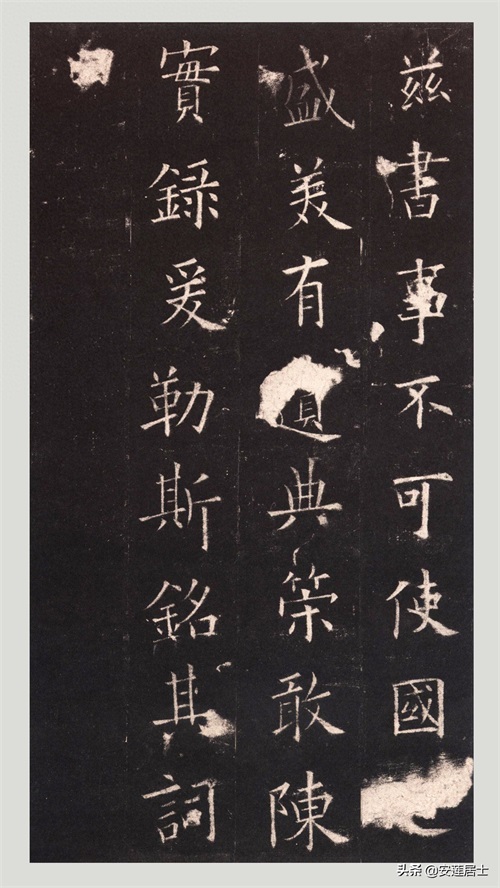 兹書事不可使國
盛美有遺典策敢陳
實錄爰勒斯銘其詞
头条 @安莲居士